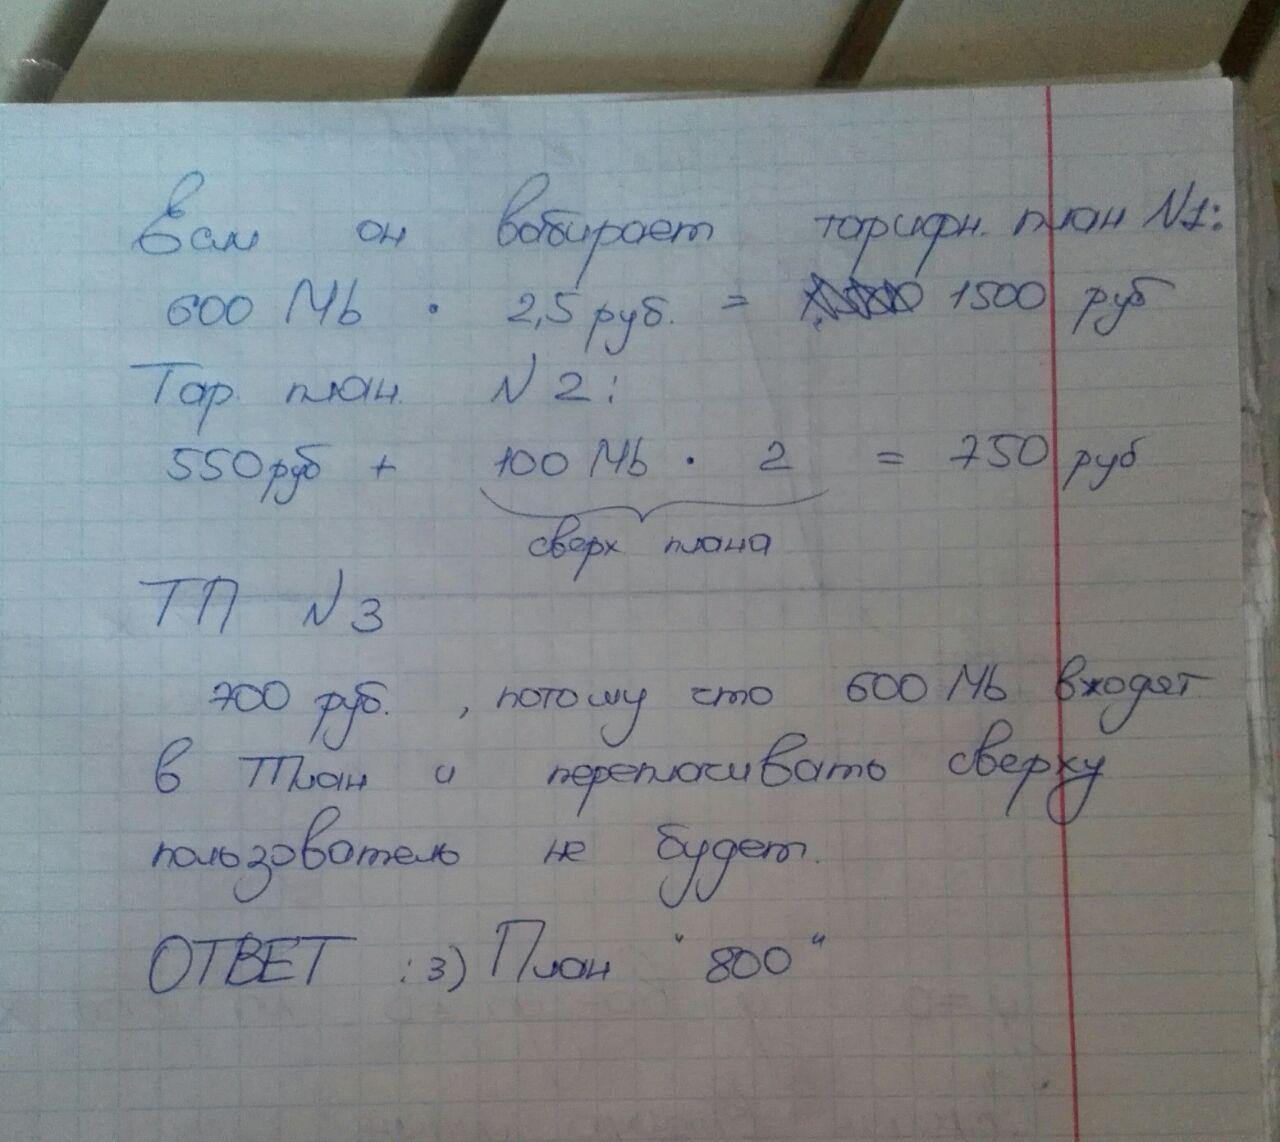 Если он выбирает тарифн. план N1:
600 Mb · 2,5 руб. = 1500 руб
Тар. план. N 2:
550 руб + 100 Mb · 2 = 750 руб
сверх плана
ТП N 3
700 руб. , потому что 600 Mb входят
в план и переплачивать сверху
пользователь не будет.
ОТВЕТ : 3) План "800"